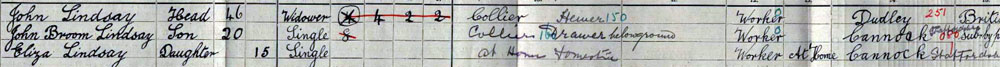 John Lindsay Head 46 Widower 4 2 2 Collier Hewer 150 Worker Dudley 251
John Broom Lindsay Son 20 Single Collier Drawer belowground Worker Cannock
Eliza Lindsay Daughter 15 Single at Home Domestic Worker At Home Cannock